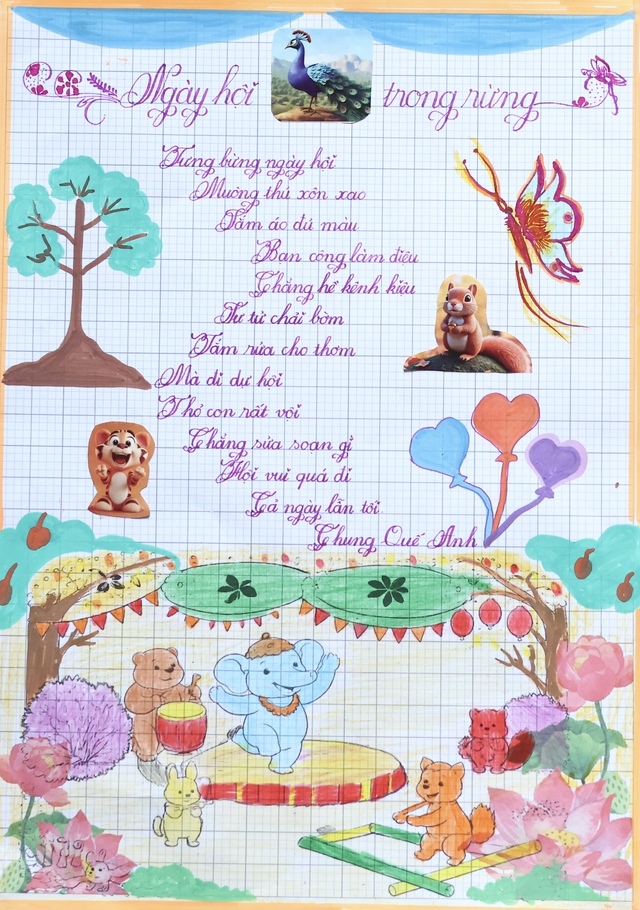 Ngày hội trong rừng
Tưng bừng ngày hội
Muông thú xôn xao
Tắm áo đủ màu
Ban công làm điệu
Chẳng hề kênh kiệu
Từ từ chải bờm
Tắm rửa cho thơm
Mà đi dự hội
Thỏ con rất vội
Chẳng sửa soạn gì
Hội vui quá đi
Cả ngày lẫn tối
Chung Quế Anh